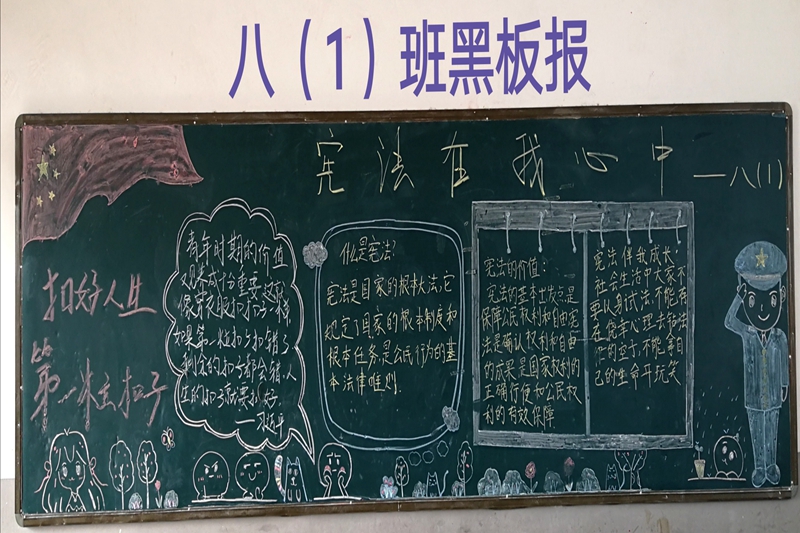 八（1）班黑板报
宪法在我心中
——八(1)
扣好人生
第一粒扣子
青年时期的价值
观养成十分重要,这就
像穿衣服扣扣子一样
如果第一粒扣子扣错了
剩余的扣子都会错,人
生的扣子 要扣好
——习近平
什么是宪法?
宪法是国家的根本大法,它
规定了国家的根本制度和
根本任务是公民行为的基
本法律准则
宪法的价值:
宪法的基本出发点是
保障公民权利和自由宪
法是确认权利和自由
的成果是国家权利的
正确行使和公民权
利的有效保障
宪法伴我成长:
社会生活中大家不
要以身试法,不能有
在侥幸心理去钻法
的空子,不能拿自
己的生命开玩笑